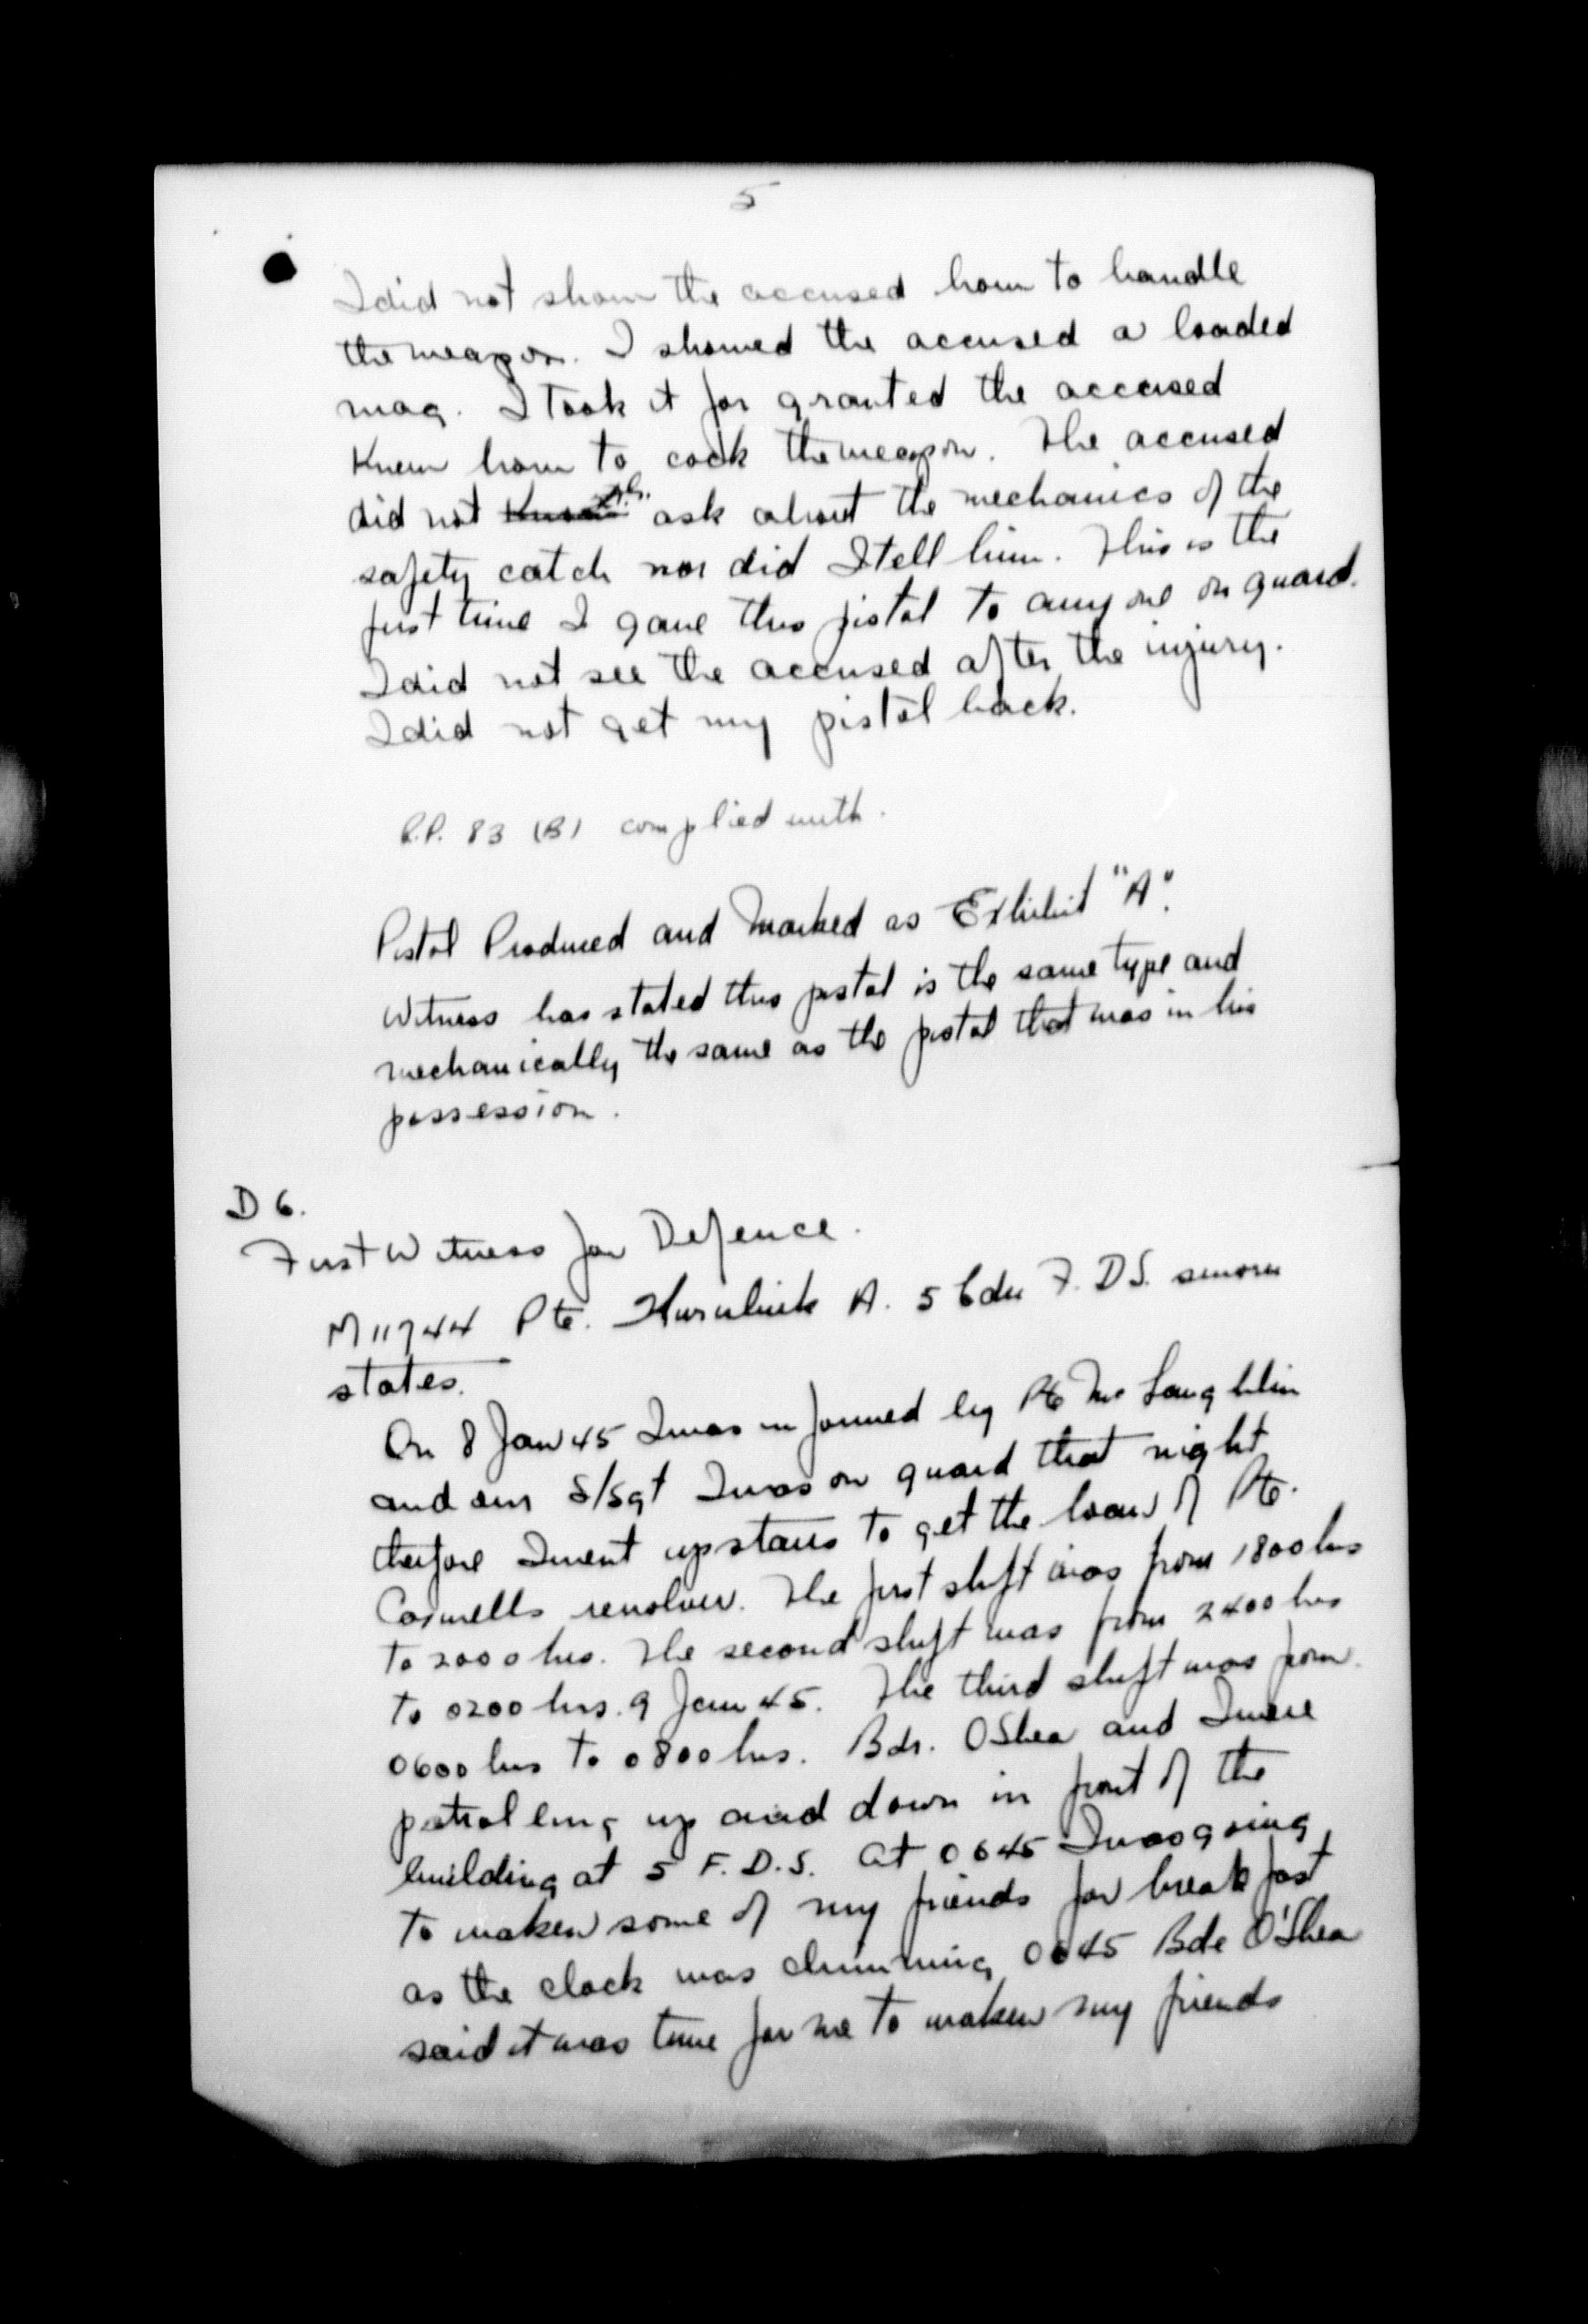 5
I did not show the accused how to handle
the weapon. I showed the accused a loaded
mag. I took it for granted the accused
knew how to cock the weapon. The accused
did not ask about the mechanics of the
safety catch nor did I tell him. This is the
first time I gave this pistol to anyone on guard.
I did not see the accused after the injury.
I did not get my pistol back.
R.P. 83 (B) complied with.
Pistol Produced and Marked as Exhibit "A".
Witness has stated this pistol is the same type and
mechanically the same as the pistol that was in his
possession.
D 6.
First Witness for Defence.
M11744 Pte. A. 5 Cdn F.D.S. sworn
states.
On 8 Jan 45 I was informed by Pte McLaughlin
and our S/Sgt I was on guard that night
therfore I went upstairs to get the loan of Pte.
revolver. The first shift was from 1800 hrs
to 2000 hrs. The second shift was from 2400 hrs
to 0200 hrs. 9 Jan 45. The third shift was from
0600 hrs to 0800 hrs. Bdr. OShea and I were
patroling up and down in front of the
building at 5 F.D.S. At 0645 I was going
to waken some of my friends for breakfast
as the clock was chimming 0645 Bdr O'Shea
said it was time for me to waken my friends